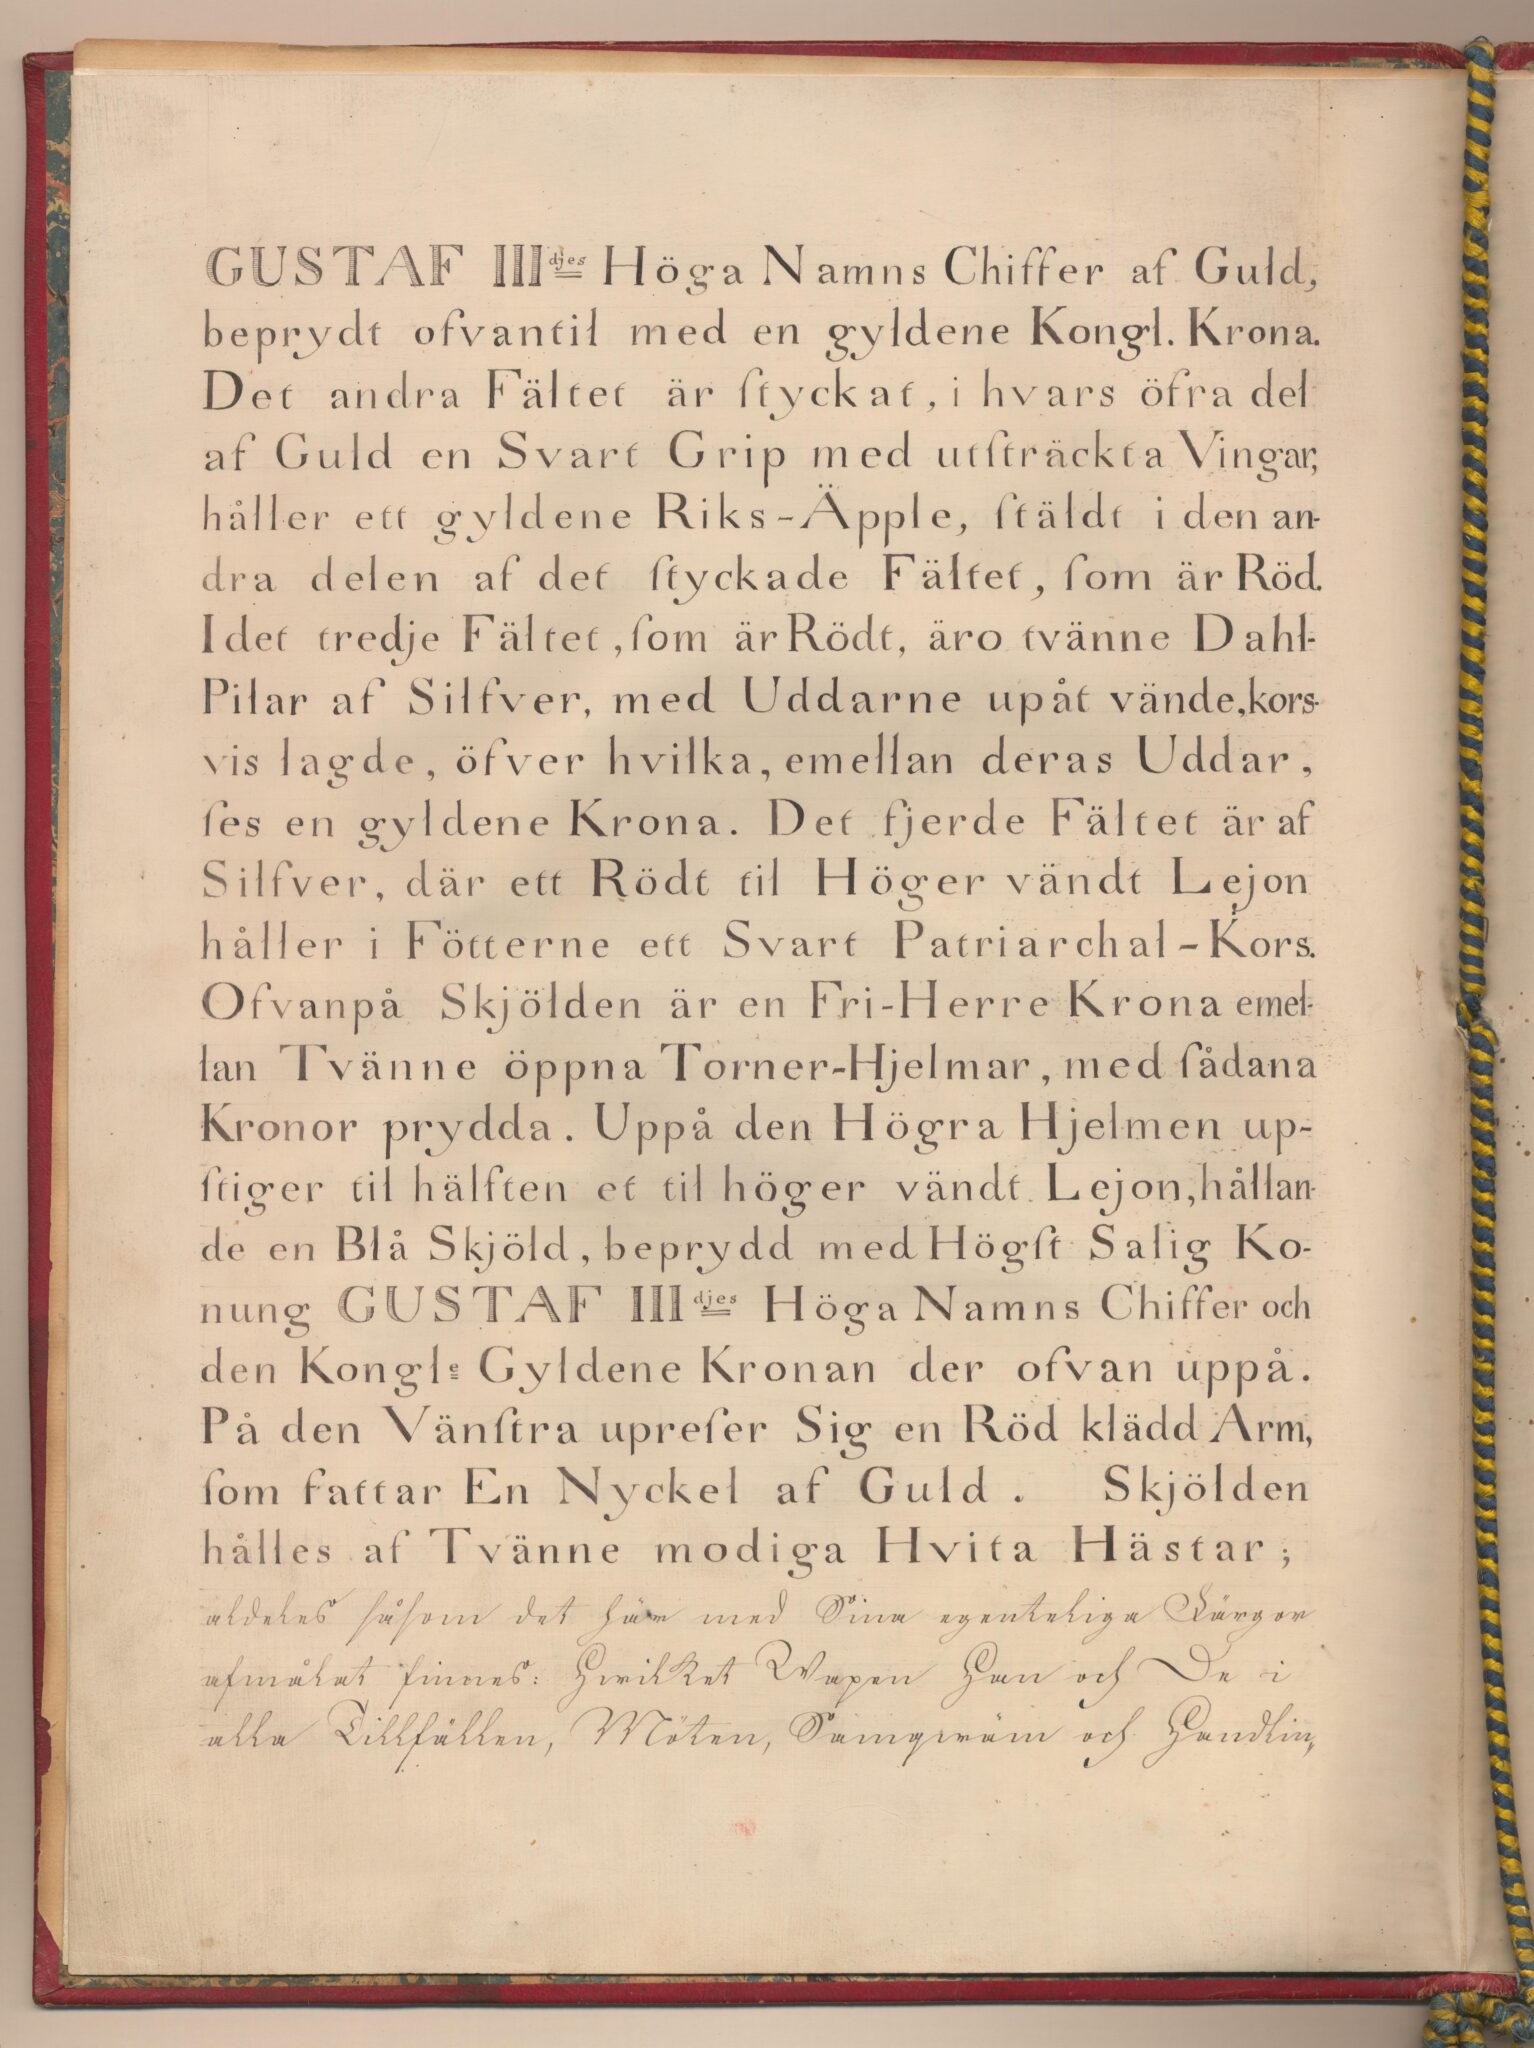 GUSTAF III djes Höga Namns Chiffer af Guld,
beprydt ofvantil med en gyldene Kongl. Krona.
Det andra Fältet är ſtyckat, i hvars öfra del
af Guld en Svart Grip med utſträckta Vingar,
håller ett gyldene Riks-Äpple, ſtäldt i den an-
dra delen af det ſtyckade Fältet, ſom är Röd.
I det tredje Fältet, ſom är Rödt, äro tvänne Dahl-
Pilar af Silfver, med Uddarne upåt vände, kors-
vis lagde, öfver hvilka, emellan deras Uddar,
ſes en gyldene Krona. Det fjerde Fältet är af
Silfver, där ett Rödt til Höger vändt Lejon
håller i Fötterne ett Svart Patriarchal-Kors.
Ofvanpå Skjölden är en Fri-Herre Krona emel-
lan Tvänne öppna Torner-Hjelmar, med ſådana
Kronor prydda. Uppå den Högra Hjelmen up-
ſtiger til hälften et til höger vändt Lejon, hållan-
de en Blå Skjöld, beprydd med Högſt Salig Ko-
nung GUSTAF III djes Höga Namns Chiffer och
den Kongle Gyldene Kronan der ofvan uppå.
På den Vänſtra upreſer Sig en Röd klädd Arm,
ſom fattar En Nyckel af Guld. Skjölden
hålles af Tvänne modiga Hvita Hästar;
aldeles såsom det här med Sina egenteliga Färgor
afmålat finnes: Hwilket Wapen Han och De i
alla Tillfällen, Möten, Samqwäm och Handlin„